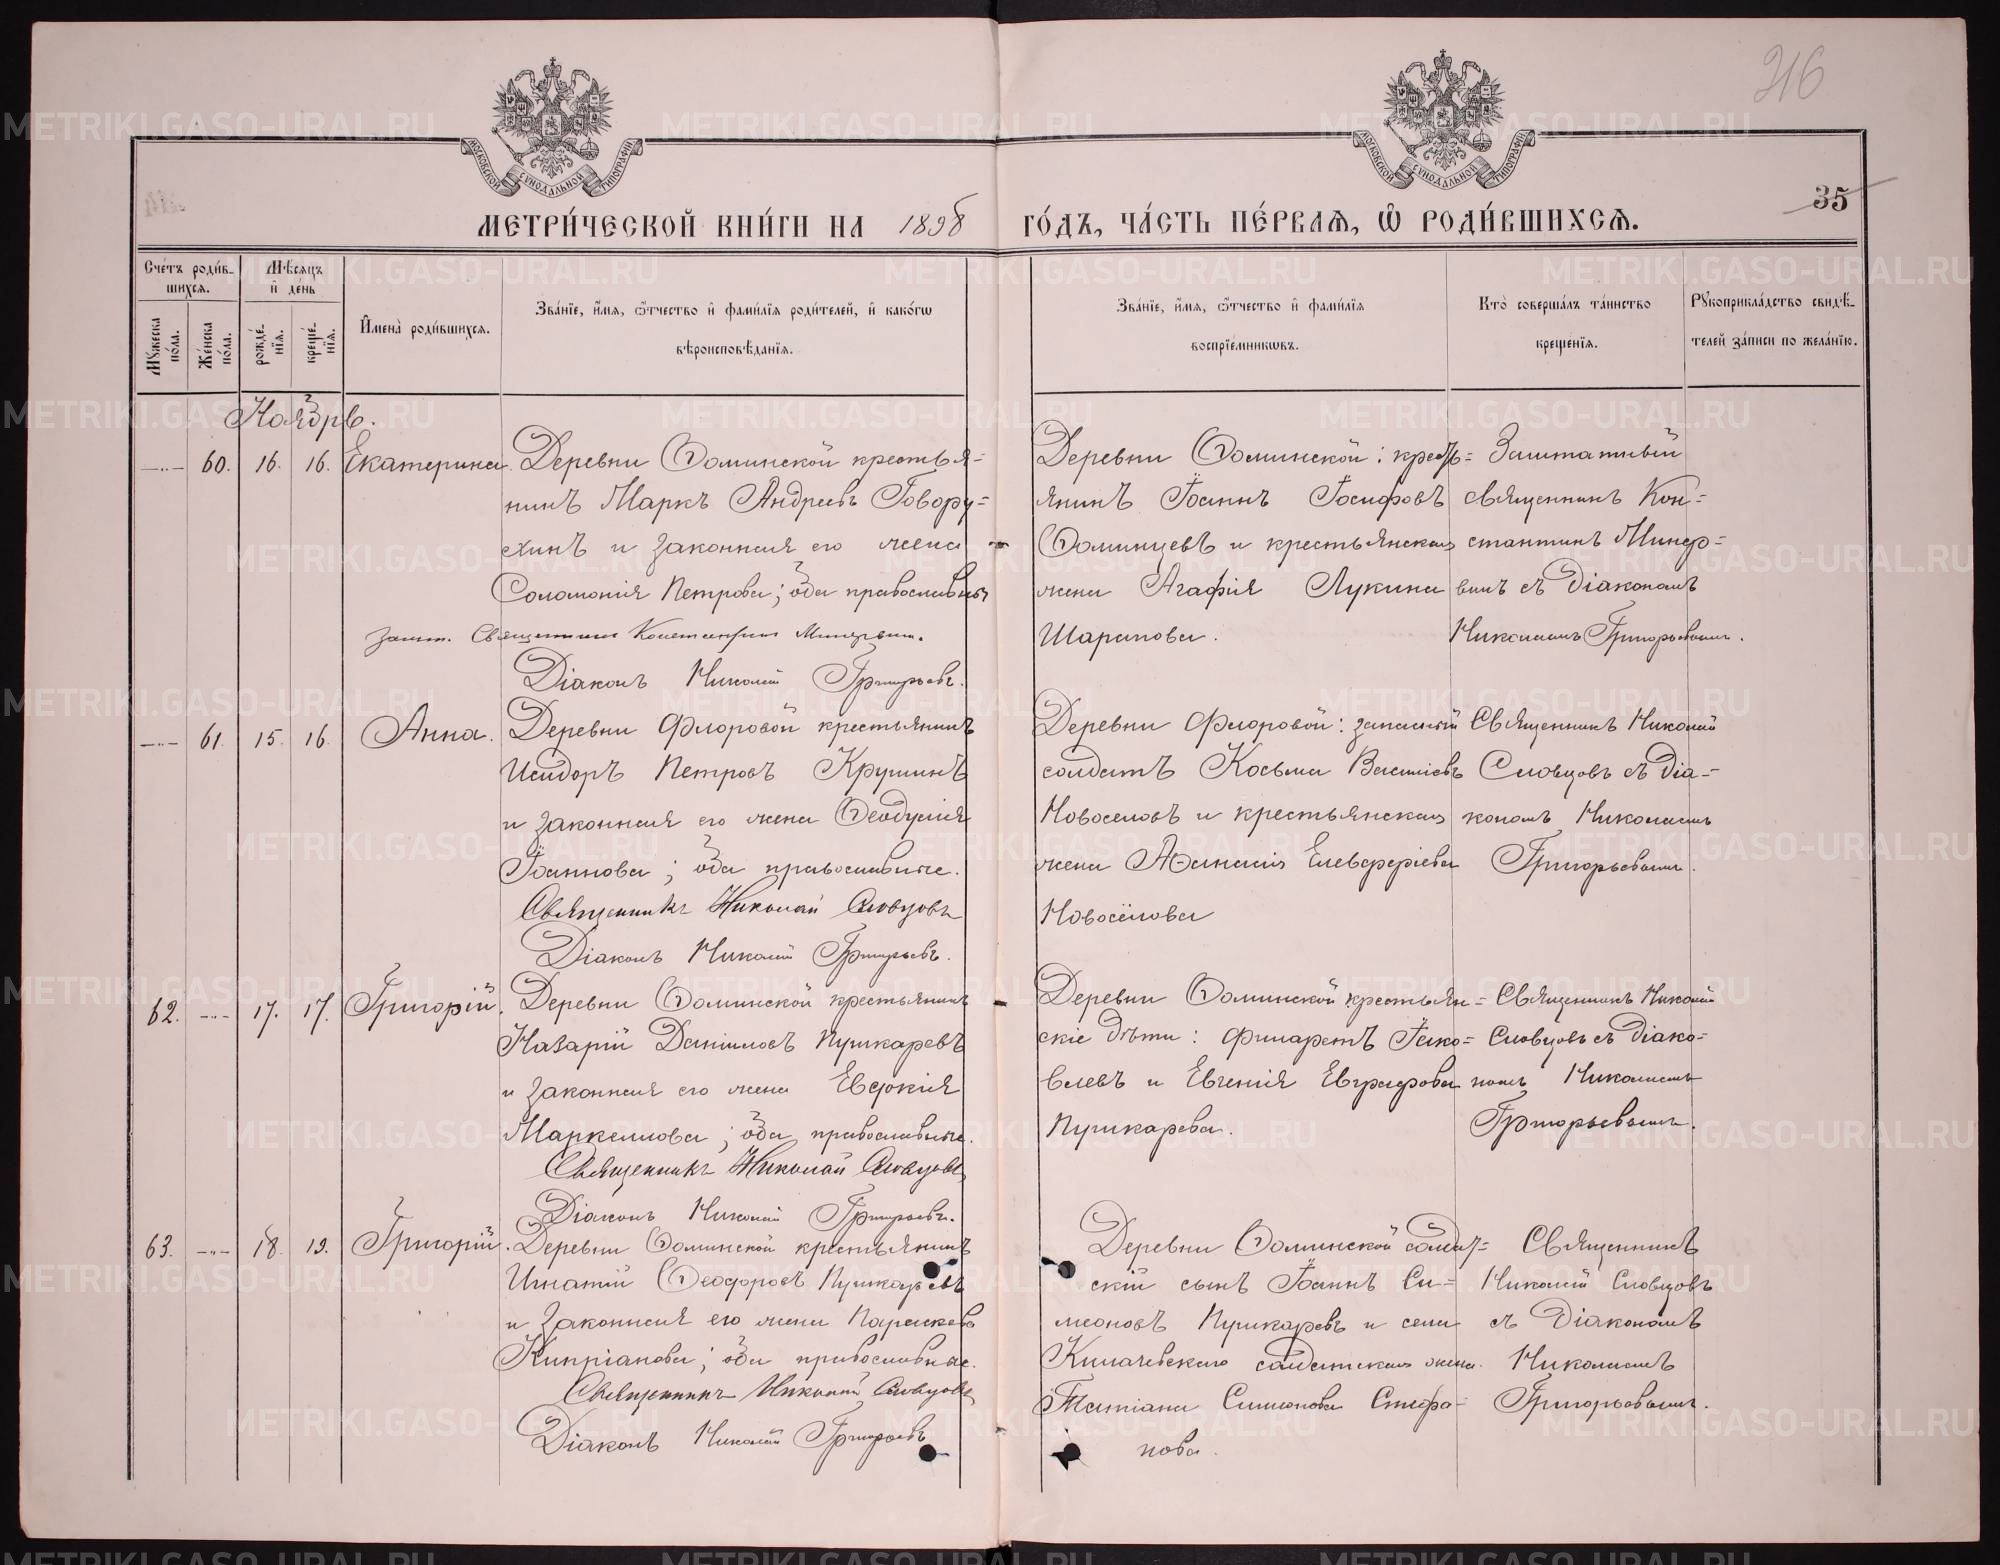 216
35
МОСКОВСКОЙ СѴНОДАЛЬНОЙ ТИПОГРАФІИ
МОСКОВСКОЙ СѴНОДАЛЬНОЙ ТИПОГРАФІИ
МЕТРИ́ЧЕСКОЙ КНИ́ГИ НА 1898 ГО́ДЪ, ЧА́СТЬ ПЕ́РВАѦ, Ѿ РОДИ́ВШИХСѦ.
Сче́тъ роди́в-
шихсѧ.
Мꙋжеска по́ла.
Же́нска по́ла.
Мѣ́сѧцъ и҆ де́нь
рожде́нїѧ.
креще́нїѧ.
И҆мена̀ роди́вшихсѧ.
Зва́нїе, и҆́мѧ, ѻ҆́тчество и҆ фами́лїѧ роди́телей, и҆ како́гѡ
вѣроисповѣ́данїѧ.
Зва́нїе, и҆́мѧ, ѻ҆́тчество и҆ фами́лїѧ
воспрїе́мникѡвъ.
Кто̀ соверша́лъ та́инство
креще́нїѧ.
Рꙋкоприкла́дство свидѣ́-
телей за́писи по жела́нїю.
Ноябрь.
60. 16. 16. Екатерина.
Деревни Ѳоминской крестья=
нинъ Маркъ Андреевъ Говору=
хинъ и законная его жена
Соломонія Петрова; оба православные
Зашт. Священникъ Константинъ Минервинъ.
Діаконъ Николай Григорьевъ.
Деревни Ѳоминской: кресть=
янинъ Іоаннъ Іосифовъ
Ѳоминцевъ и крестьянская
жена Агафія Лукина
Шарапова.
Заштатный
священникъ Кон=
стантинъ Минер=
винъ съ Діакономъ
Николаемъ Григорьевымъ.
61. 15. 16. Анна.
Деревни Флоровой крестьянинъ
Исидоръ Петровъ Крушинъ
и законная его жена Ѳеодусія
Іоаннова; оба православные.
Священникъ Николай Словцовъ
Діаконъ Николай Григорьевъ.
Деревни Флоровой: запасный
солдатъ Косьма Васильевъ
Новоселовъ и крестьянская
жена Аѳанасія Елевферіева
Новосёлова
Священникъ Николай
Словцовъ съ Діа=
кономъ Николаемъ
Григорьевымъ.
62. 17. 17. Григорій.
Деревни Ѳоминской крестьянинъ
Назарій Даніиловъ Пушкаревъ
и законная его жена Евфкія
Маркеллова; оба православные.
Священникъ Николай Словцовъ
Діаконъ Николай Григорьевъ.
Деревни Ѳоминской крестьян=
скіе дѣти: Филаретъ Іако=
влевъ и Евгенія Евграфова
Пушкарева.
Священникъ Николай
Словцовъ съ Діако=
номъ Николаемъ
Григорьевымъ.
63. 18. 19. Григорій.
Деревни Ѳоминской крестьянинъ
Игнатій Ѳеодоровъ Пушкаревъ
и законная его жена Параскева
Кипріанова; оба православные.
Священникъ Николай Словцовъ
Діаконъ Николай Григорьевъ
Деревни Ѳоминской солдат=
скій сынъ Іоаннъ Си=
меоновъ Пушкаревъ и села
Килачевскаго солдатская жена
Татіана Симонова Стефа=
нова.
Священникъ
Николай Словцовъ
съ Діакономъ
Николаемъ
Григорьевымъ.
METRIKI.GASO-URAL.RU